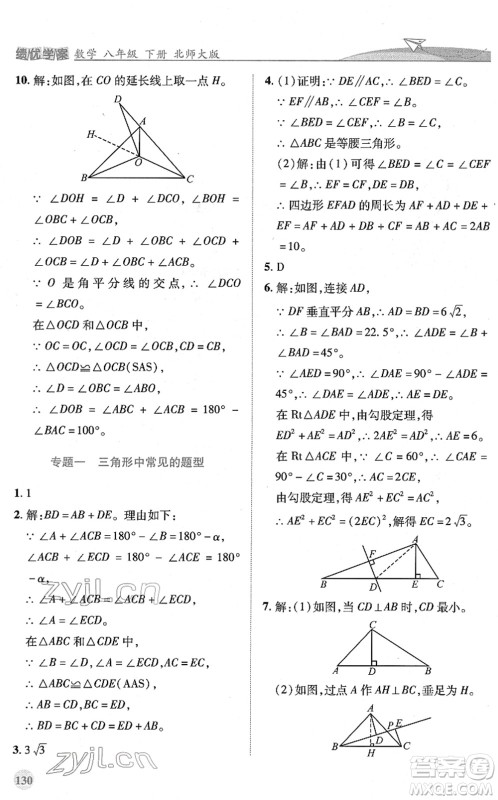 绩优学案 数学 八年级 下册 北师大版
10. 解:如图,在 CO 的延长线上取一点 H.
D
A
H
O
B
C
∵ ∠DOH = ∠D + ∠DCO, ∠BOH =
∠OBC + ∠OCB,
∴ ∠DOB = ∠D + ∠DCO + ∠OBC +
∠OCB.
∵ O 是角平分线的交点, ∴ ∠DCO
= ∠BCO.
在△OCD 和△OCB 中,
∵ OC = OC, ∠OCD = ∠OCB, CD = CB,
∴ △OCD≌△OCB(SAS).
∴ ∠D = ∠OBC.
∴ ∠DOB = ∠ABC + ∠ACB = 180° -
∠BAC = 180° - α.
专题一 三角形中常见的题型
1. 1
2. 解:BD = AB + DE. 理由如下:
∵ ∠A + ∠ACB = 180° - ∠B = 180° - α,
∠ACB + ∠ECD = 180° - ∠ACE = 180°
- α,
∴ ∠A + ∠ACB = ∠ACB + ∠ECD.
∴ ∠A = ∠ECD.
在△ABC 和△CDE 中,
∵ ∠A = ∠ECD, ∠B = ∠D, AC = CE,
∴ △ABC≌△CDE(AAS).
∴ AB = CD, BC = DE.
∴ BD = BC + CD = DE + AB.
3. 3√3
130
4. (1)证明:∵ CD // BE, ∴ ∠BED = ∠C.
∵ EF // AC, ∴ ∠CEF = ∠C.
∴ ∠BED = ∠CEF.
∵ ∠BED = ∠B, ∴ ∠B = ∠C.
∴ △ABC 是等腰三角形.
(2)解:由(1)可得 ∠BED = ∠CEF =
∠B = ∠C, ∴ DB = DE, EF = CF.
∴ 四边形 EFAD 的周长为 AF + AD +
DE + EF = AF + AD + DB + CF = AB + AC
= 10.
5. D
6. 解:如图,连接 AD,
∵ DF 垂直平分 AB, ∴ AD = BD = 6√2,
∴ ∠B = ∠BAD = 22. 5°, ∴ ∠ADE =
∠B + ∠BAD = 45°.
∵ ∠AED = 90°, ∴ ∠DAE = ∠ADE =
45°, ∴ ∠DAE = ∠ADE, ∴ AE = ED.
在 Rt△ADE 中,由勾股定理,得
ED² + AE² = AD², ∴ AE = 6.
在 Rt△AEC 中,由勾股定理,得
AE² + EC² = AC². ∵ AC = 2EC,
∴ AE² + EC² = (2EC)².
解得 EC = 2√3.
A
F
B
D
E
C
7. 解:(1)如图,当 CD⊥AB 时,CD 最小.
C
A
D
B
(2)如图,过点 A 作 AH⊥BC,垂足为 H.
A
P
E
D
B
H
C
zyjl.cn
zyjl.cn